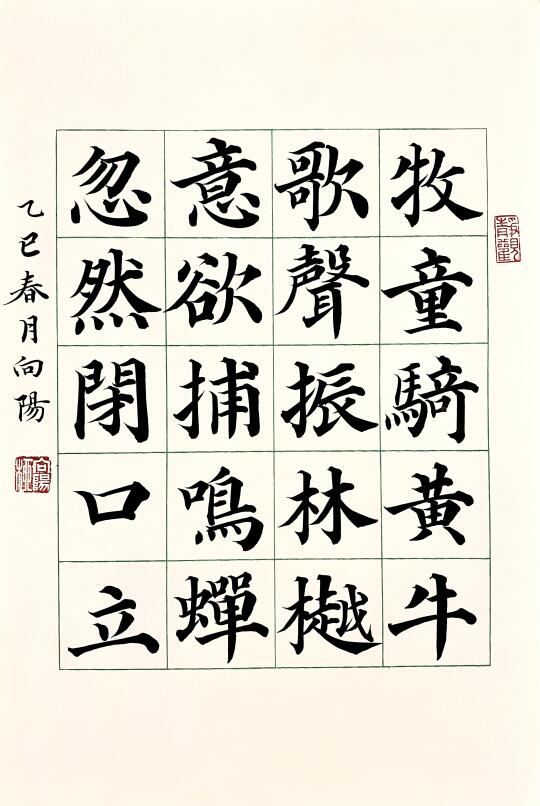 牧童騎黄牛
歌聲振林樾
意欲捕鳴蟬
忽然閉口立
乙巳春月向陽